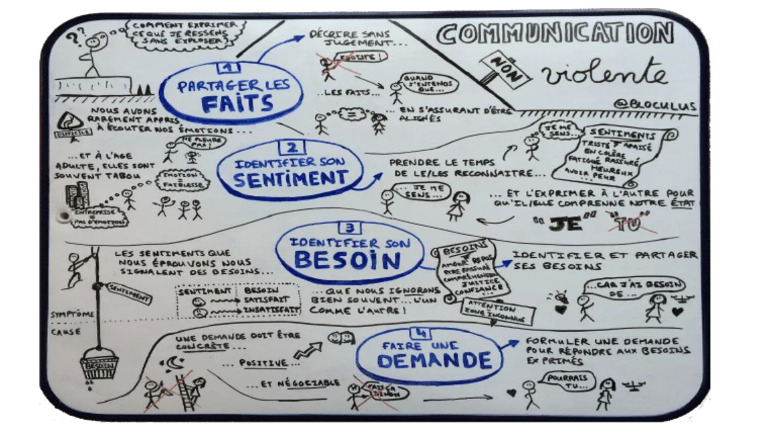 COMMENT EXPRIMER
CE QUE JE RESSENS
SANS EXPLOSER ?
COMMUNICATION
NON
violente
@BLOCULUS
1
PARTAGER LES
FAITS
DÉCRIRE SANS
JUGEMENT...
EGOÏSTE !
...LES FAITS...
QUAND
J'ENTENDS
QUE...
... EN S'ASSURANT D'ÊTRE
ALIGNÉS
NOUS AVONS
RAREMENT APPRIS
À ÉCOUTER NOS ÉMOTIONS...
NE PLEURE
PAS !
...ET À L'ÂGE
ADULTE, ELLES SONT
SOUVENT TABOU
EMOTION =
FAIBLESSE
ENTREPRISE =
PAS D'ÉMOTIONS
2
IDENTIFIER SON
SENTIMENT
PRENDRE LE TEMPS
DE LE/LES RECONNAITRE...
JE ME
SENS...
SENTIMENTS
TRISTE APAISÉ
EN COLÈRE
FATIGUÉ RASSURÉ
HEUREUX
AVOIR PEUR
... JE ME
SENS...
... ET L'EXPRIMER À L'AUTRE POUR
QU'IL/ELLE COMPRENNE NOTRE ÉTAT
"JE" "TU"
3
IDENTIFIER SON
BESOIN
LES SENTIMENTS QUE
NOUS ÉPROUVONS NOUS
SIGNALENT DES BESOINS...
SENTIMENT
SYMPTÔME
CAUSE
BESOIN
SENTIMENT BESOIN
SATISFAIT
INSATISFAIT
... QUE NOUS IGNORONS
BIEN SOUVENT... L'UN
COMME L'AUTRE !
BESOINS
AMOUR REPOS
ÊTRE RASSURÉ
COMPRÉHENSION
JUSTICE
CONFIANCE...
ATTENTION
ZONE INCONNUE
IDENTIFIER ET PARTAGER
SES BESOINS
...CAR J'AI BESOIN
DE...
4
FAIRE UNE
DEMANDE
UNE DEMANDE DOIT ÊTRE
CONCRÈTE...
... POSITIVE...
... ET NÉGOCIABLE
FAIS ÇA
SINON
FORMULER UNE DEMANDE
POUR RÉPONDRE AUX BESOINS
EXPRIMÉS
POURRAIS
TU...